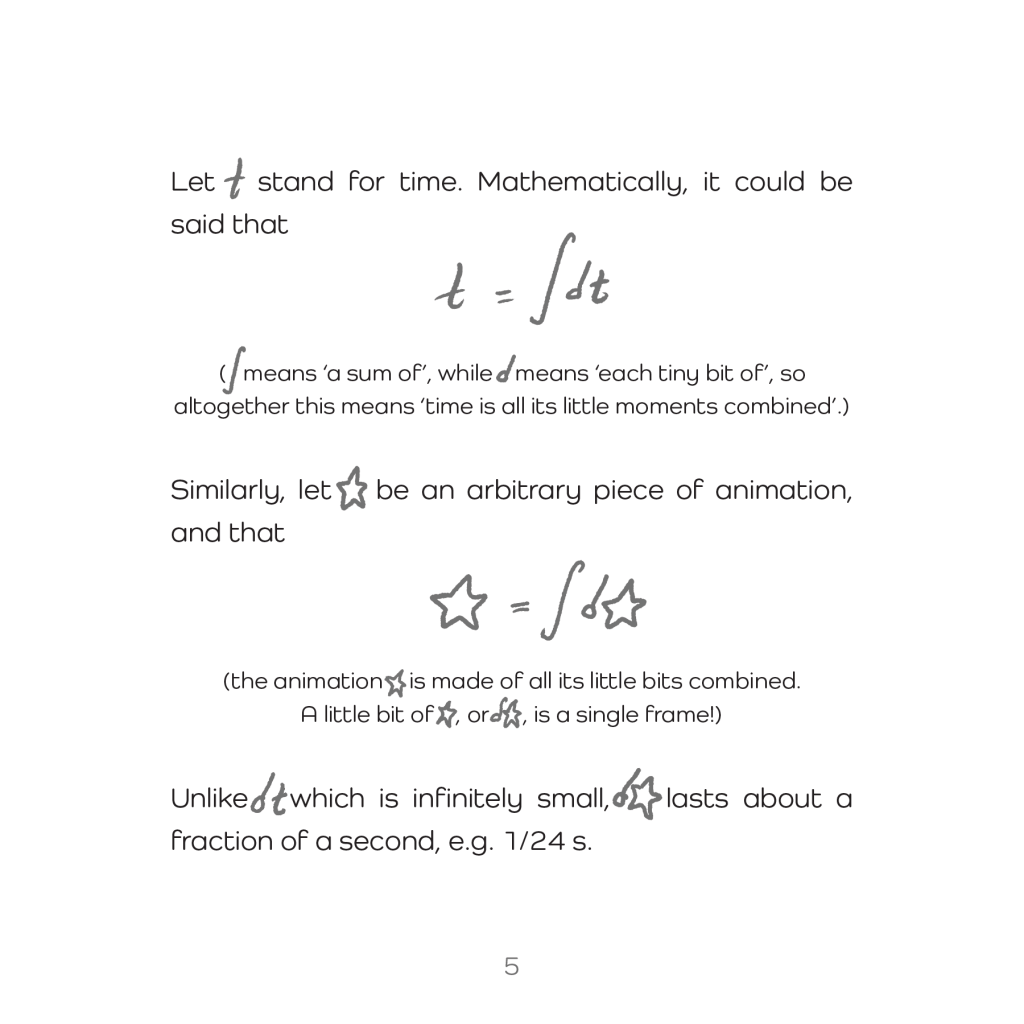 Let t stand for time. Mathematically, it could be
said that
t = ∫dt
(∫ means ‘a sum of’, while d means ‘each tiny bit of’, so
altogether this means ‘time is all its little moments combined’.)
Similarly, let ☆ be an arbitrary piece of animation,
and that
☆ = ∫d☆
(the animation ☆ is made of all its little bits combined.
A little bit of ☆, or d☆, is a single frame!)
Unlike dt which is infinitely small, d☆ lasts about a
fraction of a second, e.g. 1/24 s.
5